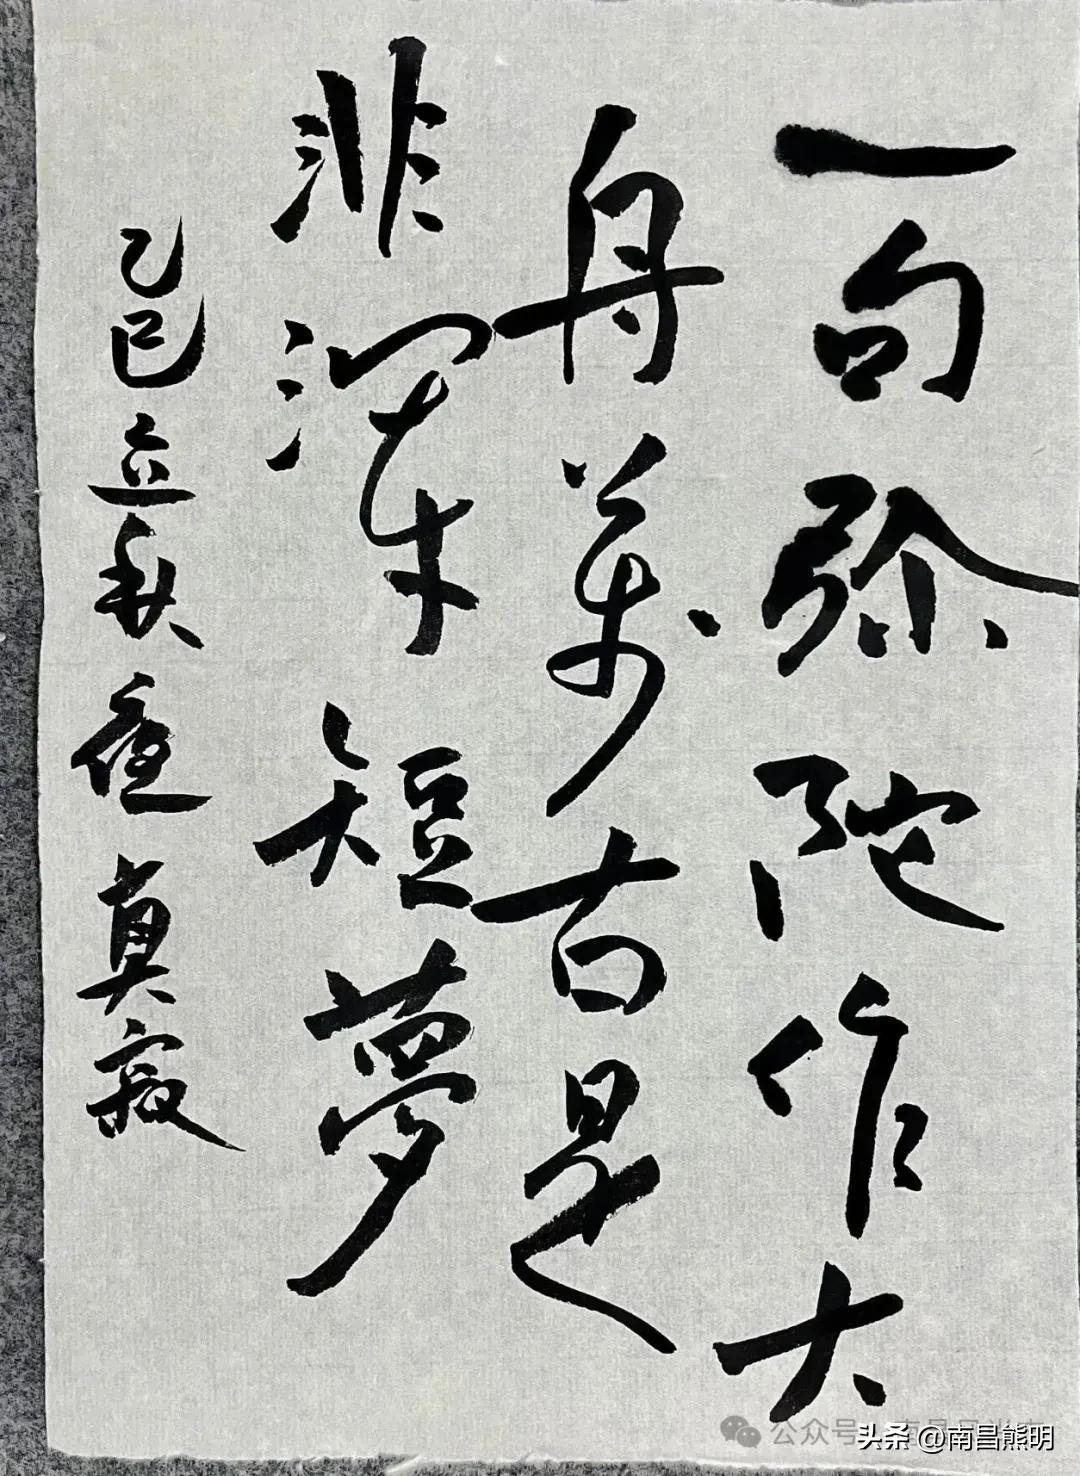 一句弥陀作大
舟萬古是
非渾短夢
乙巳立秋真寂
公众号
头条 @南昌熊明